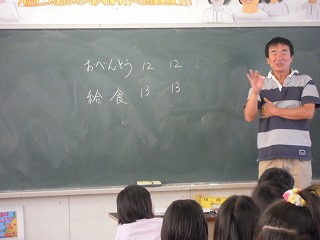 おべんとう 12 12
給食 13 13